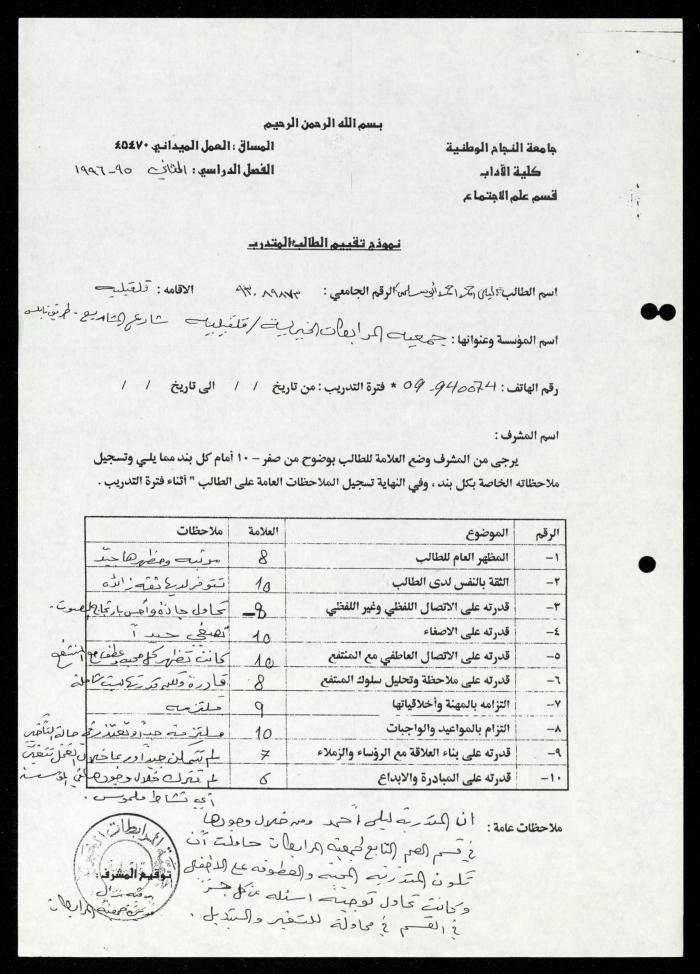 بسم الله الرحمن الرحيم
جامعة النجاح الوطنية المساق : العمل الميداني ٤٥٤٧٠
كلية الآداب الفصل الدراسي : الثاني ٩٥-١٩٩٦
قسم علم الاجتماع
نموذج تقييم الطالب المتدرب
اسم الطالب : ليلى احمد الرقم الجامعي : ٩٣٠٨٩٨٧٣ الاقامه : قلقيليه
اسم المؤسسة وعنوانها : جمعيه المرابطات الخيرية / قلقيليه شارع - طريق نابلس
رقم الهاتف : 940074-09 * فترة التدريب : من تاريخ / / الى تاريخ / /
اسم المشرف :
يرجى من المشرف وضع العلامة للطالب بوضوح من صفر - ١٠ أمام كل بند مما يلي وتسجيل
ملاحظاته الخاصة بكل بند ، وفي النهاية تسجيل الملاحظات العامة على الطالب " أثناء فترة التدريب .
الرقم الموضوع العلامة ملاحظات
١- المظهر العام للطالب 8 مرتبه ومظهرها جيد
٢- الثقة بالنفس لدى الطالب 10 تتوفر لديها ثقه زائده
٣- قدرته على الاتصال اللفظي وغير اللفظي 8 تحاول جاده
٤- قدرته على الاصغاء 10 تصغي جيداً
٥- قدرته على الاتصال العاطفي مع المنتفع 10 كانت تظهر كل محبه وعطف مع المنتفع
٦- قدرته على ملاحظة وتحليل سلوك المنتفع 8 قادرة ولكن قدرتها ليست كاملة
٧- التزامه بالمهنة وأخلاقياتها 9 ملتزمه
٨- التزام بالمواعيد والواجبات 10 ملتزمة جيداً وتعتذر في حالة التأخير
٩- قدرته على بناء العلاقة مع الرؤساء والزملاء 7 لم تتمكن جيداً
١٠- قدرته على المبادرة والابداع 6 لم تترك خلال وجودها في المؤسسة
أي نشاط ملموس .
ملاحظات عامة : ان المتدربة ليلى أحمد ومن خلال وجودها
في قسم الصم التابع لجمعية المرابطات حاولت أن
تكون المتدربه المحبه والعطوفه على الأطفال
وكانت تحاول توجيه اسئله عن كل جزء
في القسم في محاولة للتغير والتبديل .
توقيع المشرف
جمعية المرابطات